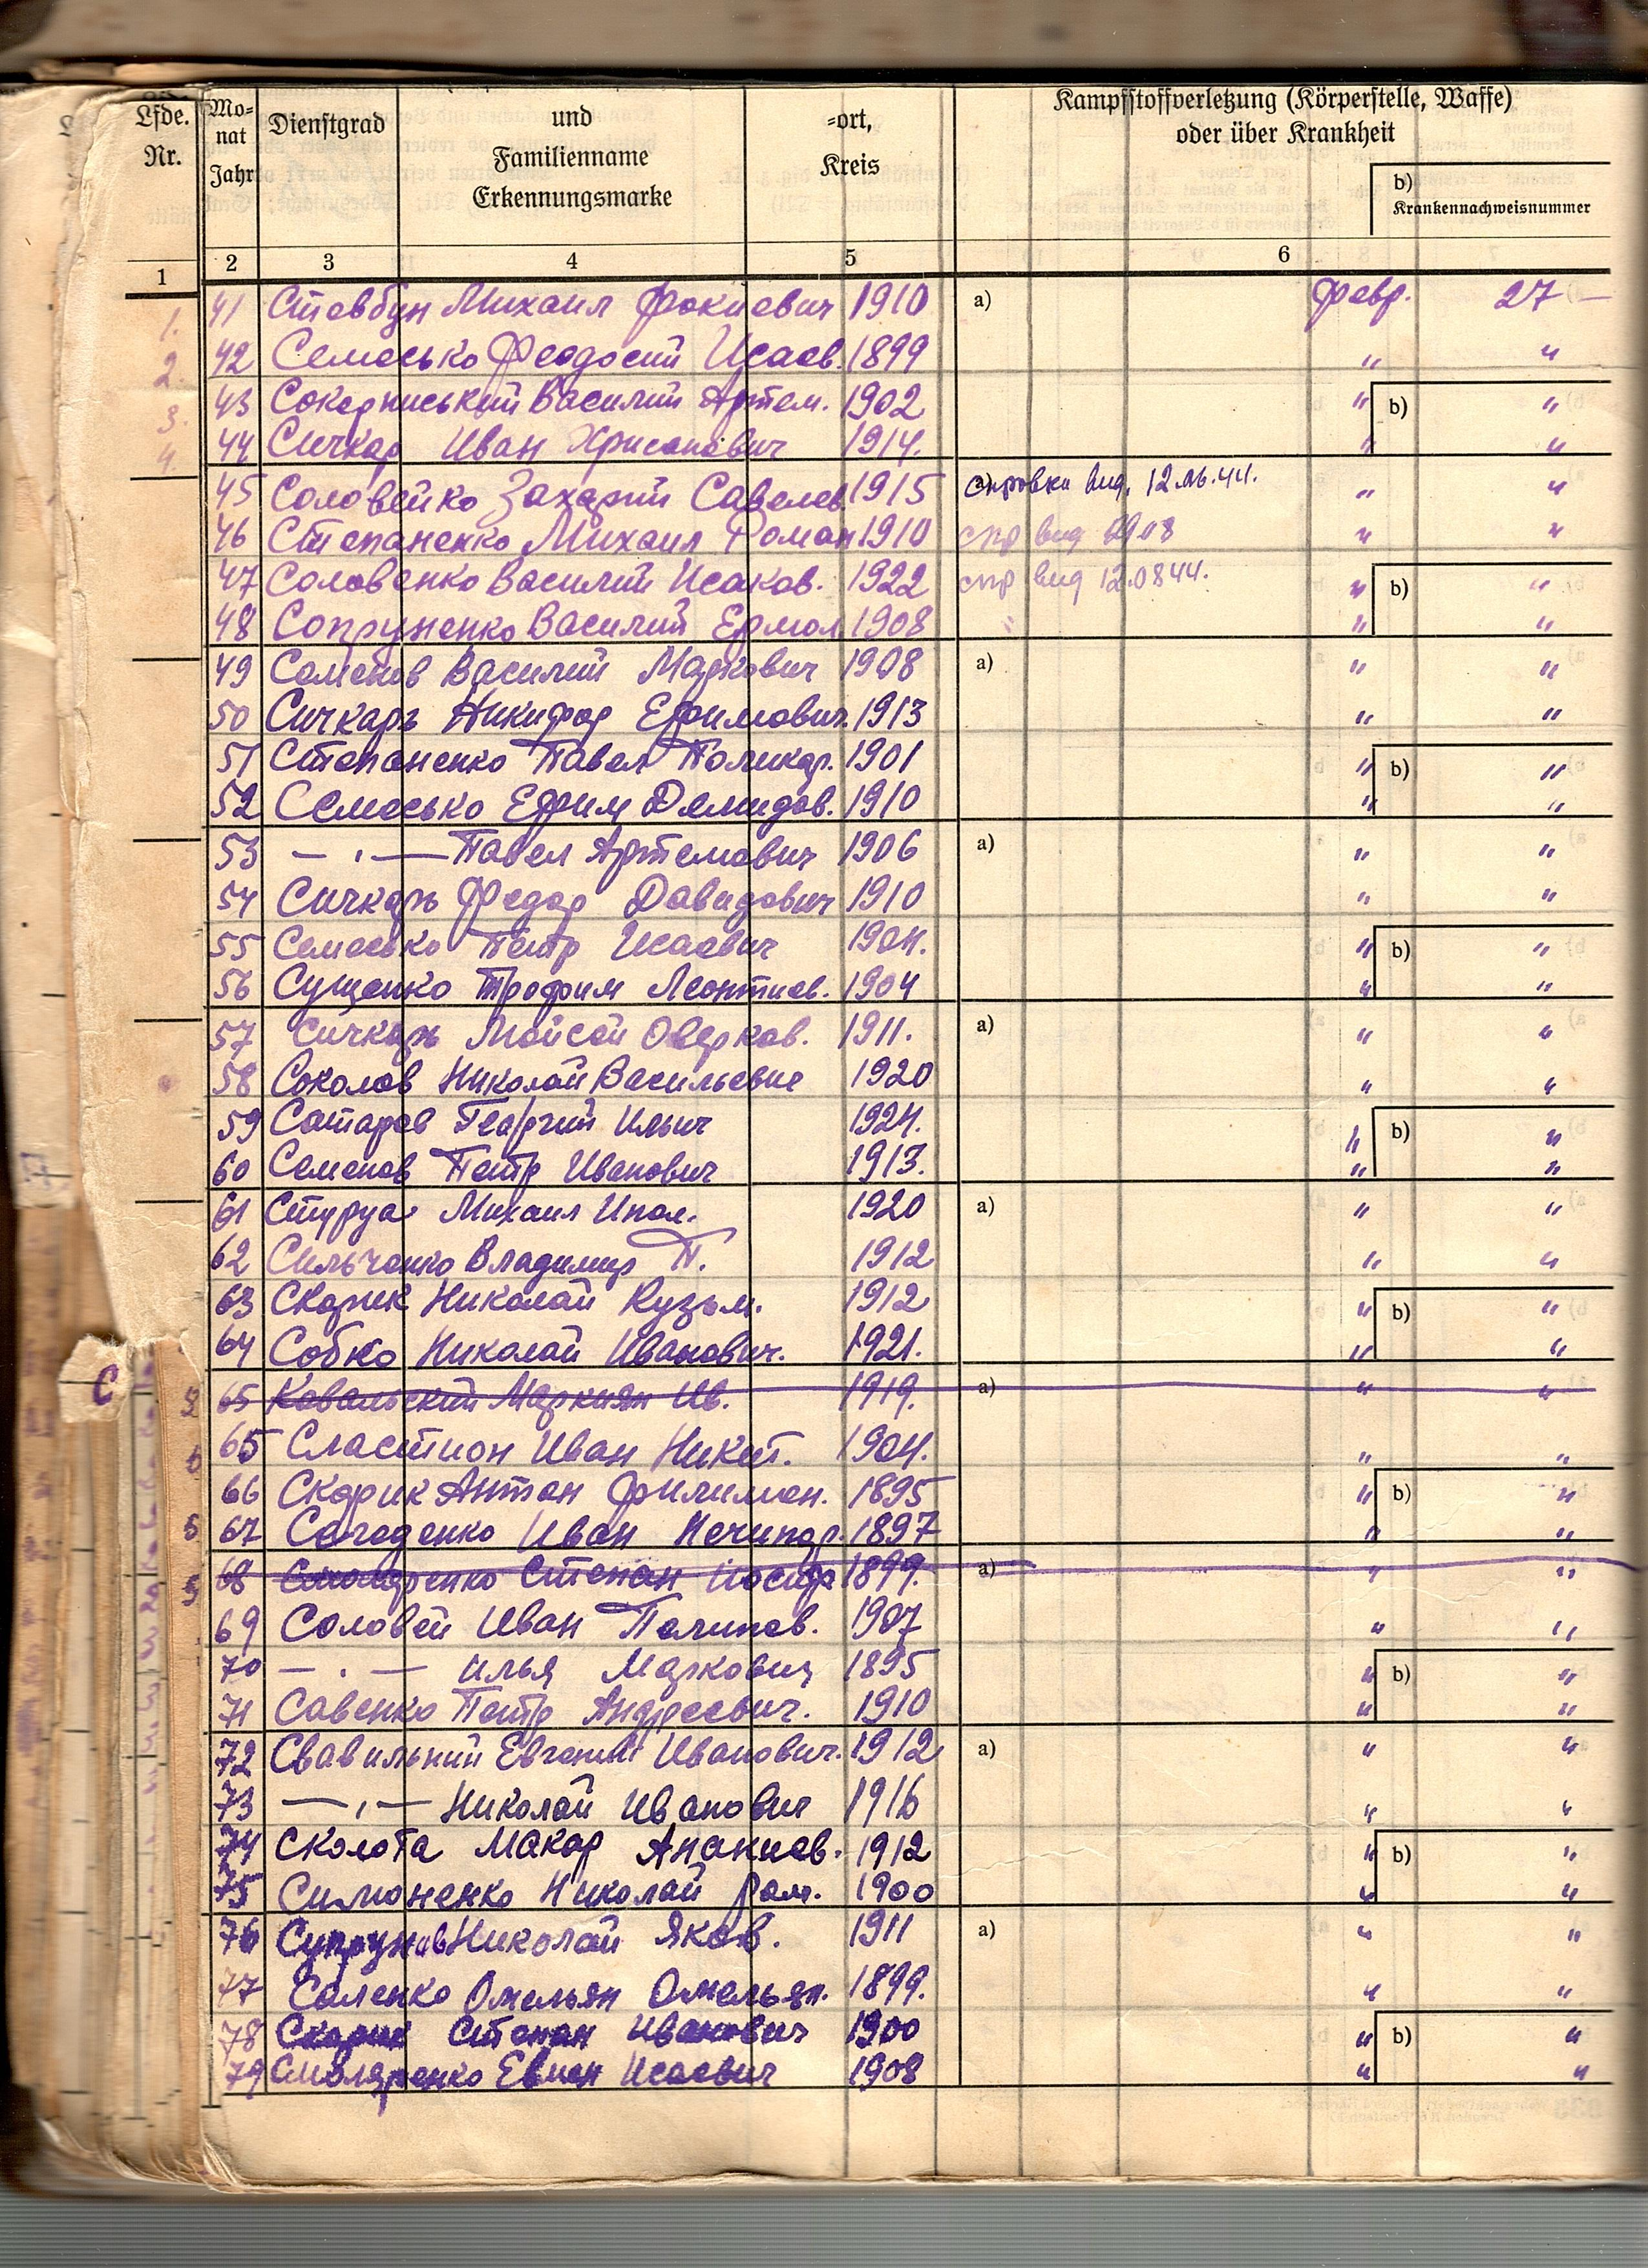 Lfde. Nr.
Mo-
nat
Jahr
Dienstgrad
und
Familienname
Erkennungsmarke
-ort,
Kreis
Kampfstoffverletzung (Körperstelle, Waffe)
oder über Krankheit
b)
Krankennachweisnummer
1 2 3 4 5 6
41 Стовбун Михаил Фокиевич 1910 a) февр. 27 —
42 Семесько Феодосий Исаев. 1899 " "
43 Сокерниський Василий Артем. 1902 " b) "
44 Сичкар Иван 1914. " "
45 Соловейко Захарий Савелев. 1915 справка выд. 12.06.44. " "
46 Степаненко Михаил Роман 1910 спр выд " "
47 Соловенко Василий Исаков. 1922 спр выд 12.0844. " b) "
48 Сопруненко Василий Ермол 1908 " "
49 Семенов Василий Маркович 1908 a) " "
50 Сичкарь Никифор Ефимович. 1913 " "
51 Степаненко Павел Поликар. 1901 " b) "
52 Семесько Ефим Демидов. 1910 " "
53 — " — Павел Артемович 1906 a) " "
54 Сичкарь Федор Давидович 1910 " "
55 Семесько Петр Исаевич 1904. " b) "
56 Сущенко Трофим Леонтиев. 1904 " "
57 Сичкарь Мойсей Оверков. 1911. a) " "
58 Соколов Николай Васильевич 1920 " "
59 Сатаров Георгий Ильич 1924. " b) "
60 Семенов Петр Иванович 1913. " "
61 Стуруа Михаил Ипол. 1920 a) " "
62 Сильченко Владимир П. 1912 " "
63 Скорик Николай Кузьм. 1912 " b) "
64 Собко Николай Иванович. 1921. " "
65 Ковальский Маркиян Ив. 1919. a) " "
65 Сластион Иван Никит. 1904. " "
66 Скорик Антон Филимон. 1895 " b) "
67 Сагаденко Иван Нечипор. 1897 " "
68 Столяренко Степан Иосиф 1899. a) " "
69 Соловей Иван 1907 " "
70 — " — Илья Маркович 1895 " b) "
71 Савенко Петр Андреевич. 1910 " "
72 Свавильний Евгений Иванович. 1912 a) " "
73 — " — Николай Иванович 1916 " "
74 Сколота Макар Ананиев. 1912 " b) "
75 Симоненко Николай Ром. 1900 " "
76 Супрунов Николай Яков. 1911 a) " "
77 Саленко Омельян Омельян. 1899. " "
78 Скорик Степан Иванович 1900 " b) "
79 Смоляренко Евмен Исаевич 1908 " "
С